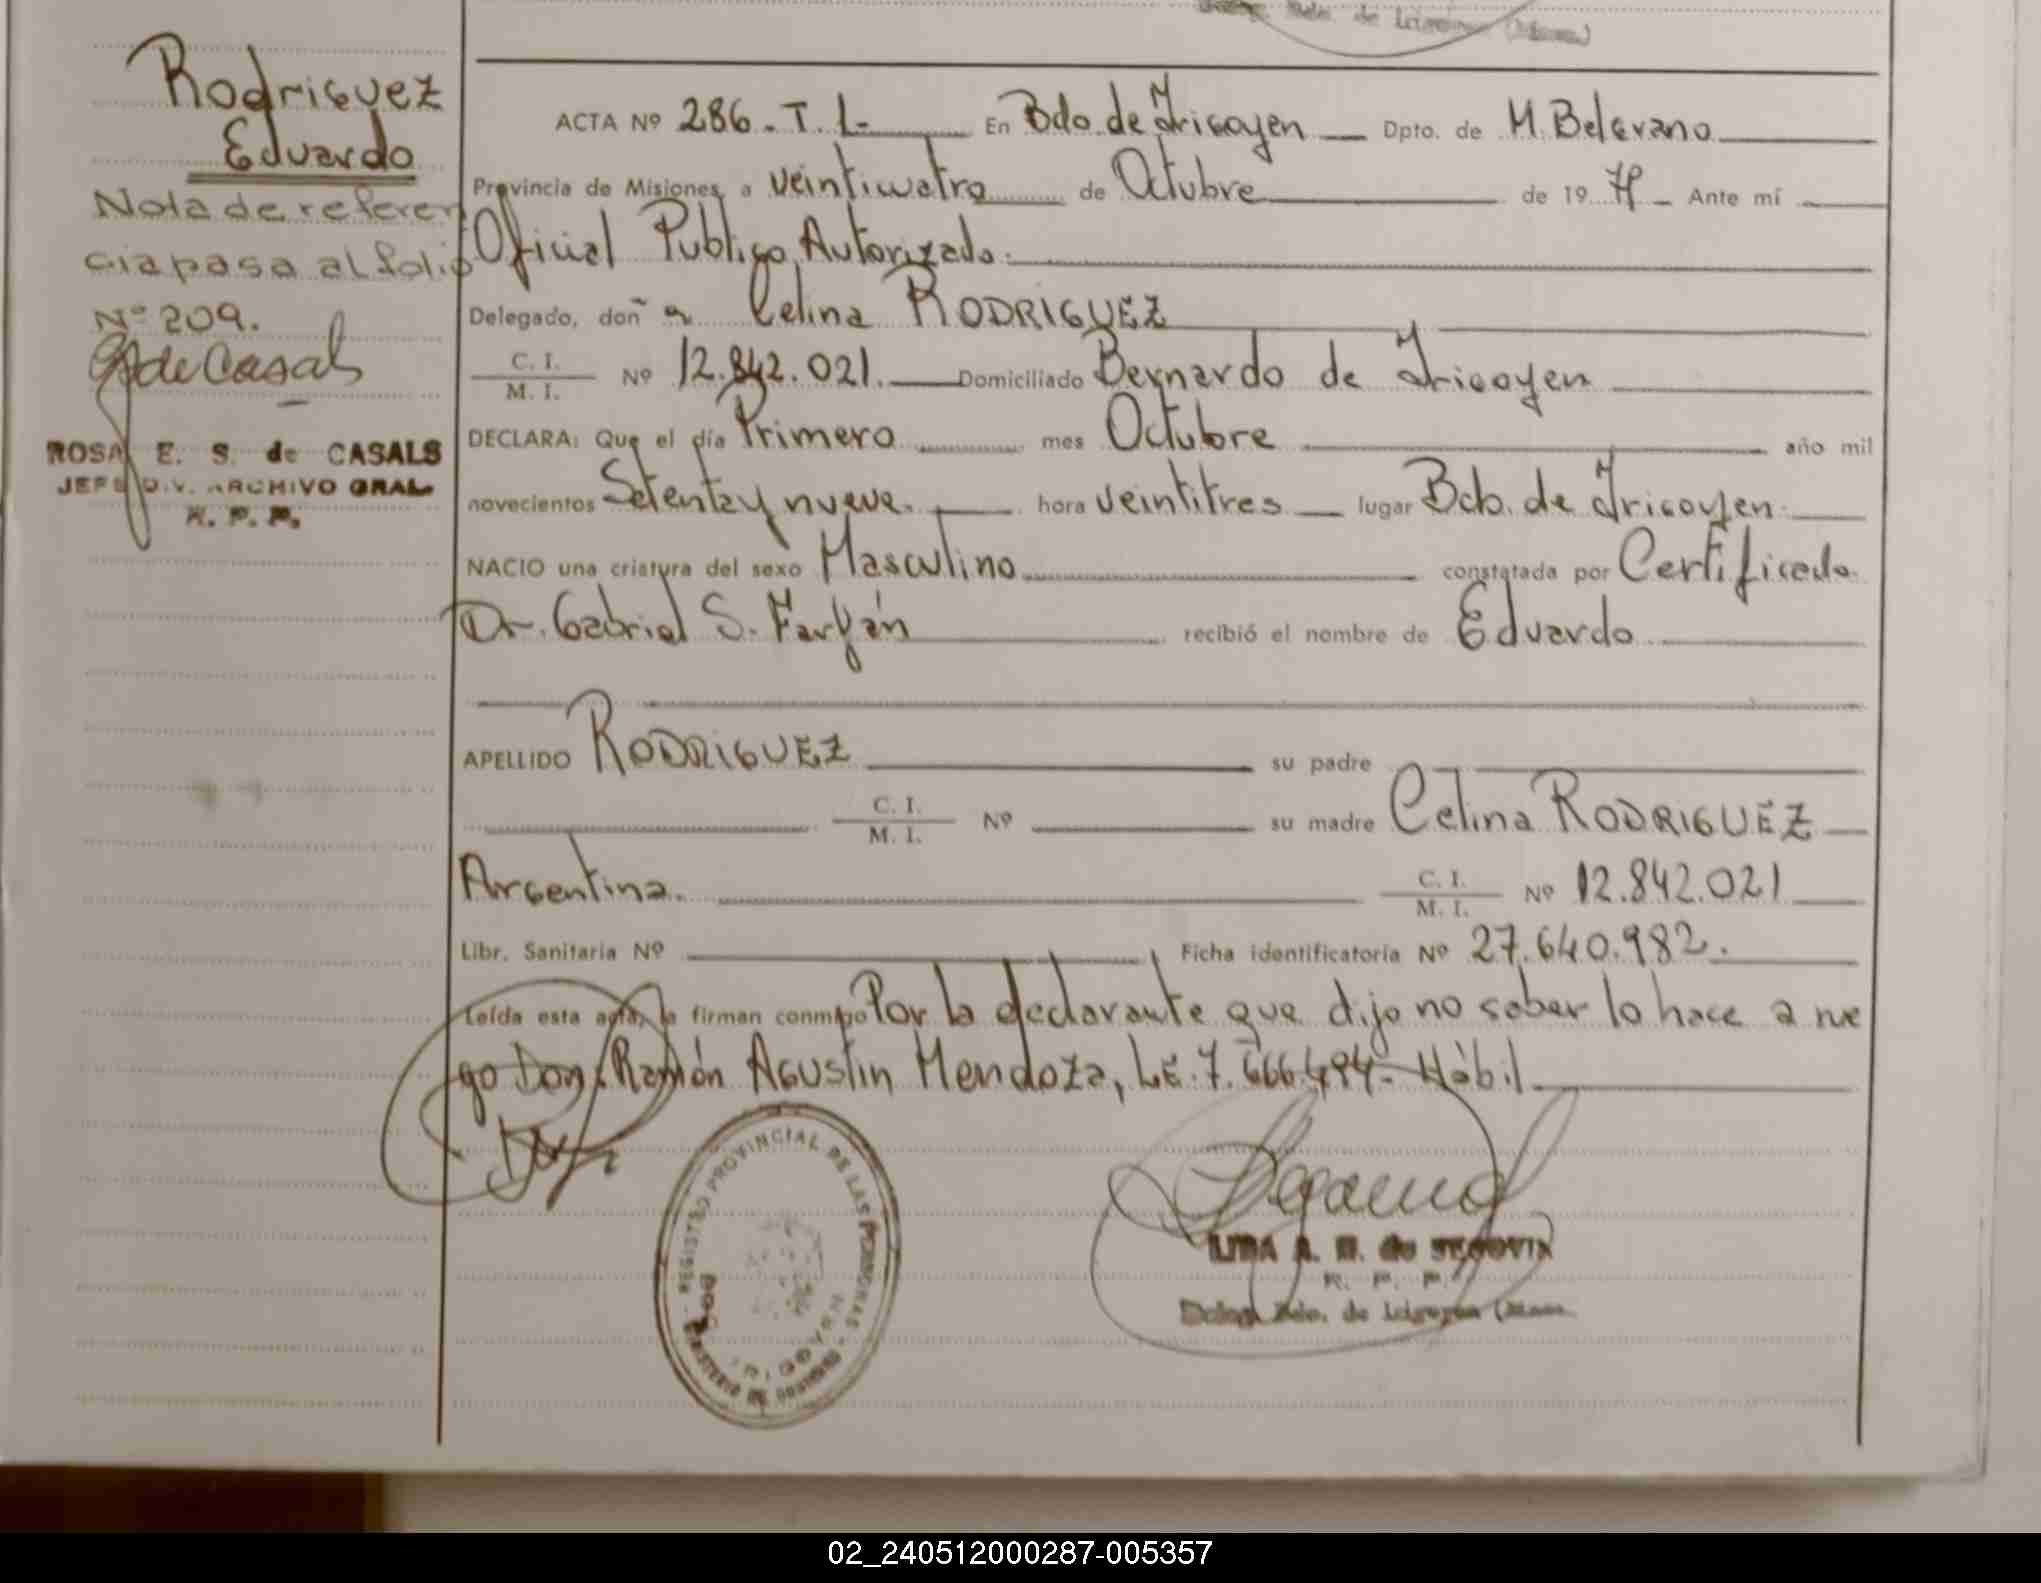 Rodriguez
Eduardo
Nota de referen
cia pasa al folio
Nº 209.
ROSA E. S. de CASALS
JEFE DIV. ARCHIVO GRAL.
R. P. P.
ACTA Nº 286. T. I. En Bdo. de Irigoyen Dpto. de M. Belgrano
Provincia de Misiones, a veinticuatro de Octubre de 19 79 Ante mí
Oficial Publico Autorizado.
Delegado, doñ a Celina RODRIGUEZ
C. I. / M. I. Nº 12.842.021. Domiciliado Bernardo de Irigoyen
DECLARA: Que el día Primero mes Octubre año mil
novecientos Setenta y nueve. hora veintitres lugar Bdo. de Irigoyen.
NACIO una criatura del sexo Masculino constatada por Certificado
Dr. Gabriel S. Farfán recibió el nombre de Eduardo
APELLIDO RODRIGUEZ su padre
C. I. / M. I. Nº su madre Celina RODRIGUEZ
Argentina. C. I. / M. I. Nº 12.842.021
Libr. Sanitaria Nº Ficha identificatoria Nº 27.640.982.
Leída esta acta, la firman conmigo Por la declarante que dijo no saber lo hace a rue
go Don Ramón Agustin Mendoza, L.E. 7.666.494. Hábil
REGISTRO PROVINCIAL DE LAS PERSONAS
MINISTERIO DE GOBIERNO
BDO. IRIGOYEN
de SEGOVIA
R. P. P.
Deleg. Bdo. de Irigoyen (Mnes.
02_240512000287-005357